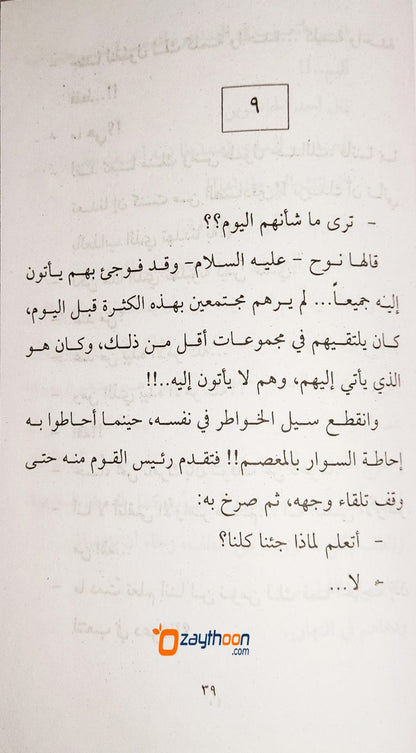 ٩
- ترى ما شأنهم اليوم؟؟
قالها نوح - عليه السلام- وقد فوجئ بهم يأتون
إليه جميعاً... لم يرهم مجتمعين بهذه الكثرة قبل اليوم،
كان يلتقيهم في مجموعات أقل من ذلك، وكان هو
الذي يأتي إليهم، وهم لا يأتون إليه..!!
وانقطع سيل الخواطر في نفسه، حينما أحاطوا به
إحاطة السوار بالمعصم!! فتقدم رئيس القوم منه حتى
وقف تلقاء وجهه، ثم صرخ به:
- أتعلم لماذا جئنا كلنا؟
- لا...
Ozaythoon
.com
٣٩